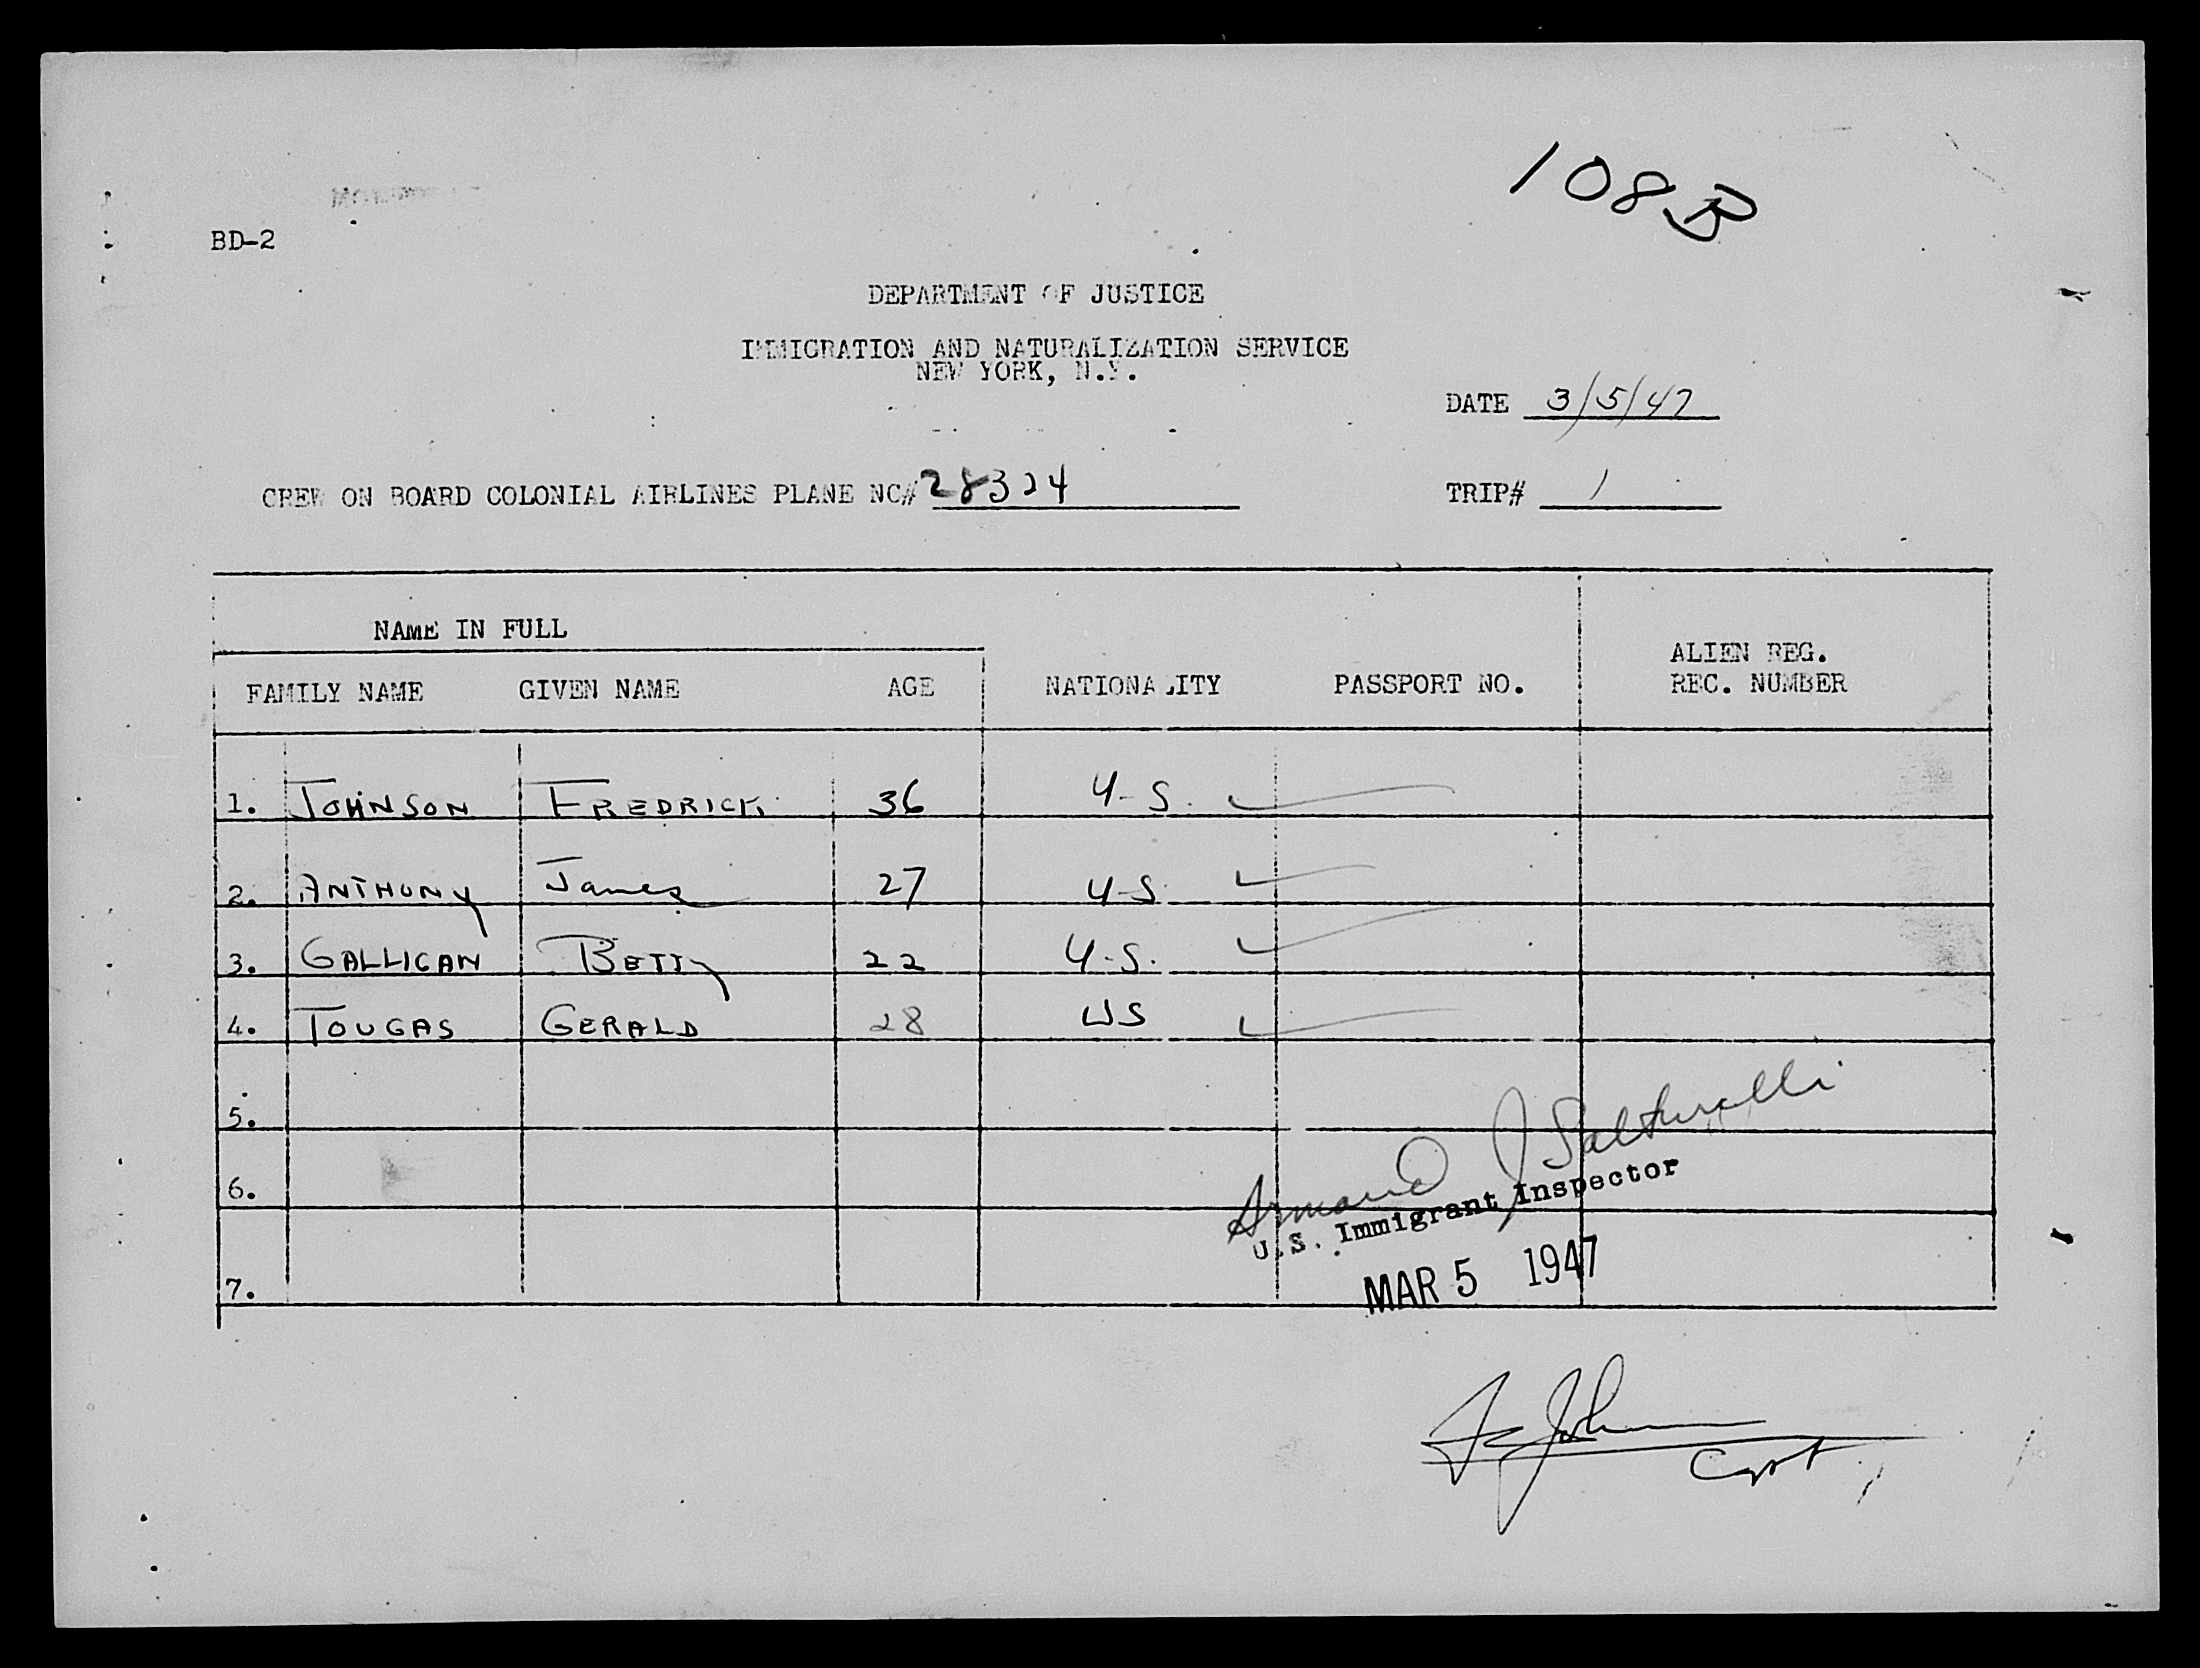 108B
BD-2
DEPARTMENT OF JUSTICE
IMMIGRATION AND NATURALIZATION SERVICE
NEW YORK, N.Y.
DATE 3/5/47
CREW ON BOARD COLONIAL AIRLINES PLANE NC# 28324 TRIP# 1
NAME IN FULL
FAMILY NAME GIVEN NAME AGE NATIONALITY PASSPORT NO. ALIEN REG. REC. NUMBER
1. JOHNSON FREDRICK 36 U-S.
2. ANTHONY James 27 U-S
3. GALLIGAN BETTY 22 U.S.
4. TOUGAS GERALD 28 US
5.
6.
7.
Armand J
U.S. Immigrant Inspector
MAR 5 1947
Johnson
Capt